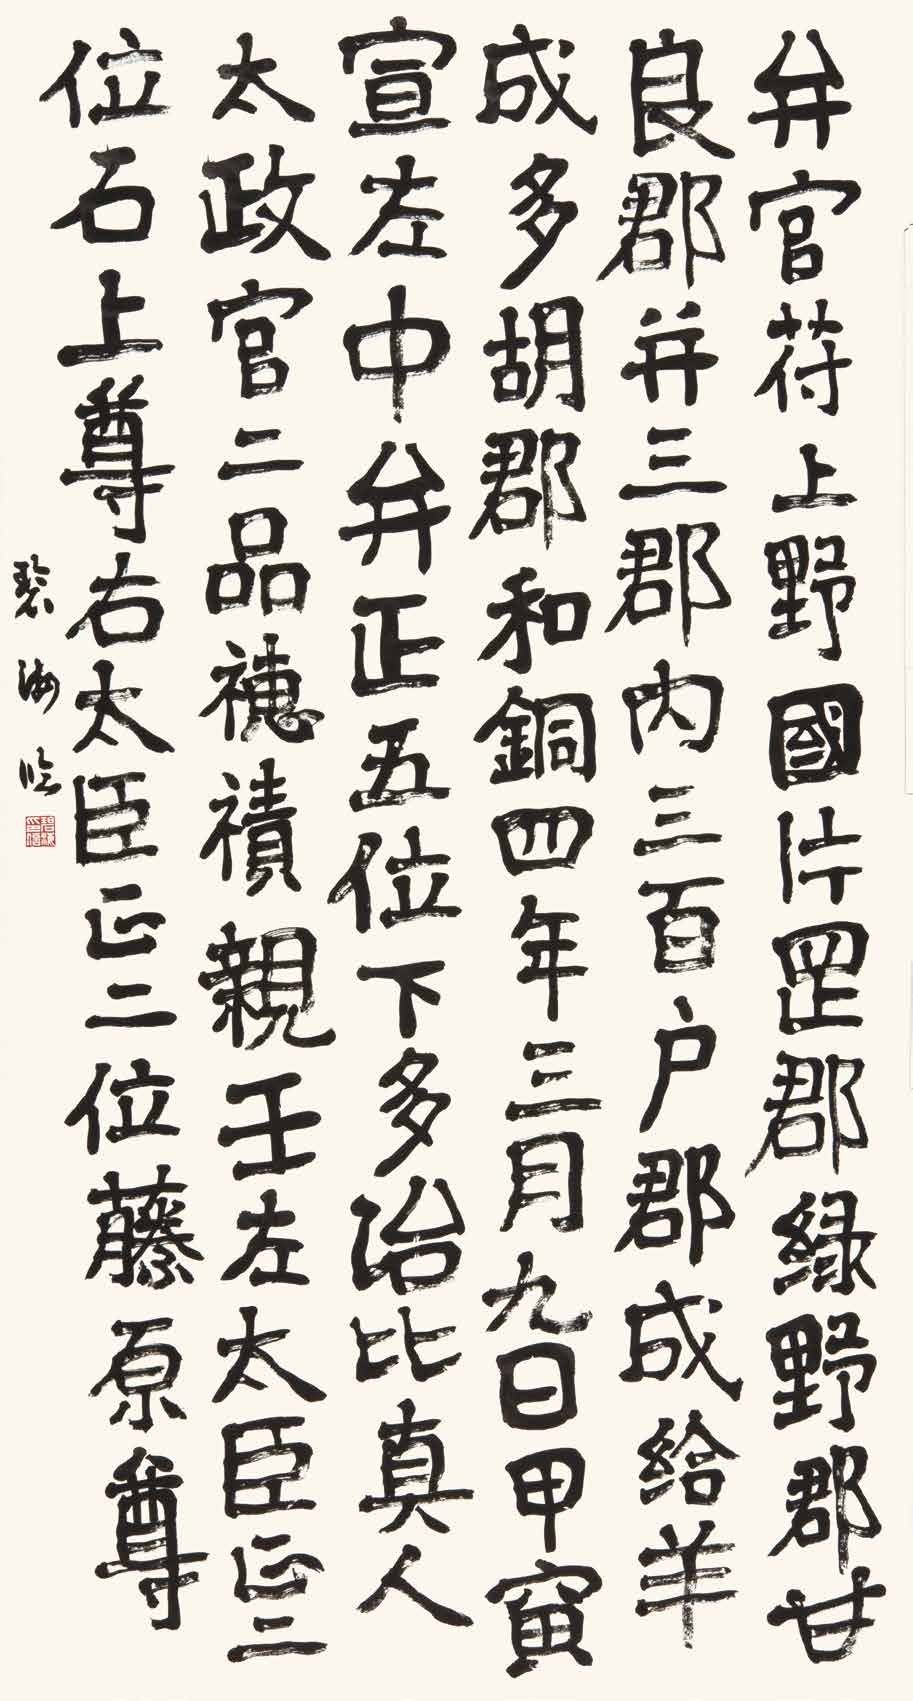 弁官苻上野國片罡郡緑野郡甘
良郡并三郡内三百户郡成給羊
成多胡郡和銅四年三月九日甲寅
宣左中弁正五位下多治比真人
太政官二品穗積親王左太臣正二
位石上尊右太臣正二位藤原尊
碧海臨